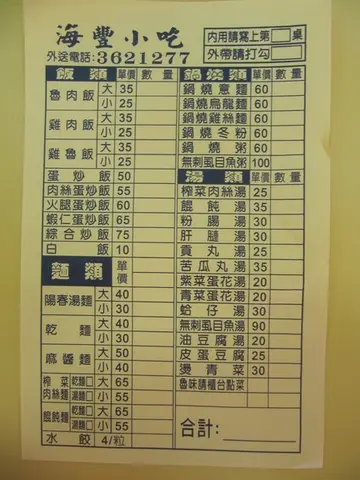 海豐小吃
外送電話:3621277
內用請寫上第 桌
外帶請打勾
飯類 單價 數量
魯肉飯 大 35
小 25
雞肉飯 大 35
小 25
雞魯飯 大 35
小 25
蛋炒飯 50
肉絲蛋炒飯 55
火腿蛋炒飯 60
蝦仁蛋炒飯 65
綜合炒飯 75
白飯 10
麵類 單價
陽春湯麵 大 40
小 30
乾麵 大 40
小 30
麻醬麵 大 50
小 40
榨菜肉絲麵 乾麵□ 湯麵□ 大 65
小 55
餛飩麵 乾麵□ 湯麵□ 大 65
小 55
水餃 4/粒
鍋燒類 單價 數量
鍋燒意麵 60
鍋燒烏龍麵 60
鍋燒雞絲麵 60
鍋燒冬粉 60
鍋燒粥 60
無刺虱目魚粥 100
湯類 單價 數量
榨菜肉絲湯 25
餛飩湯 35
粉腸湯 30
肝膸湯 30
貢丸湯 25
苦瓜丸湯 35
紫菜蛋花湯 20
青菜蛋花湯 20
蛤仔湯 30
無刺虱目魚湯 90
油豆腐湯 20
皮蛋豆腐 25
燙青菜 30
魯味請櫃台點菜
合計: